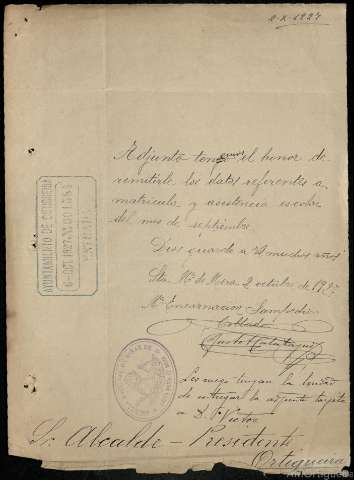 2-X-1927
Adjunto tenemos el honor de
remitirle los datos referentes a
matrícula y asistencia escolar
del mes de septiembre.
Dios guarde a V. muchos años
Sta. Mª de Mera 2 octubre de 1927
Mª Encarnación
AYUNTAMIENTO DE ORTIGUEIRA
6-OCT 1927
ENTRADA
Les ruego tengan la bondad
de entregar la adjunta tarjeta
a D.
Sr. Alcalde - Presidente
Ortigueira